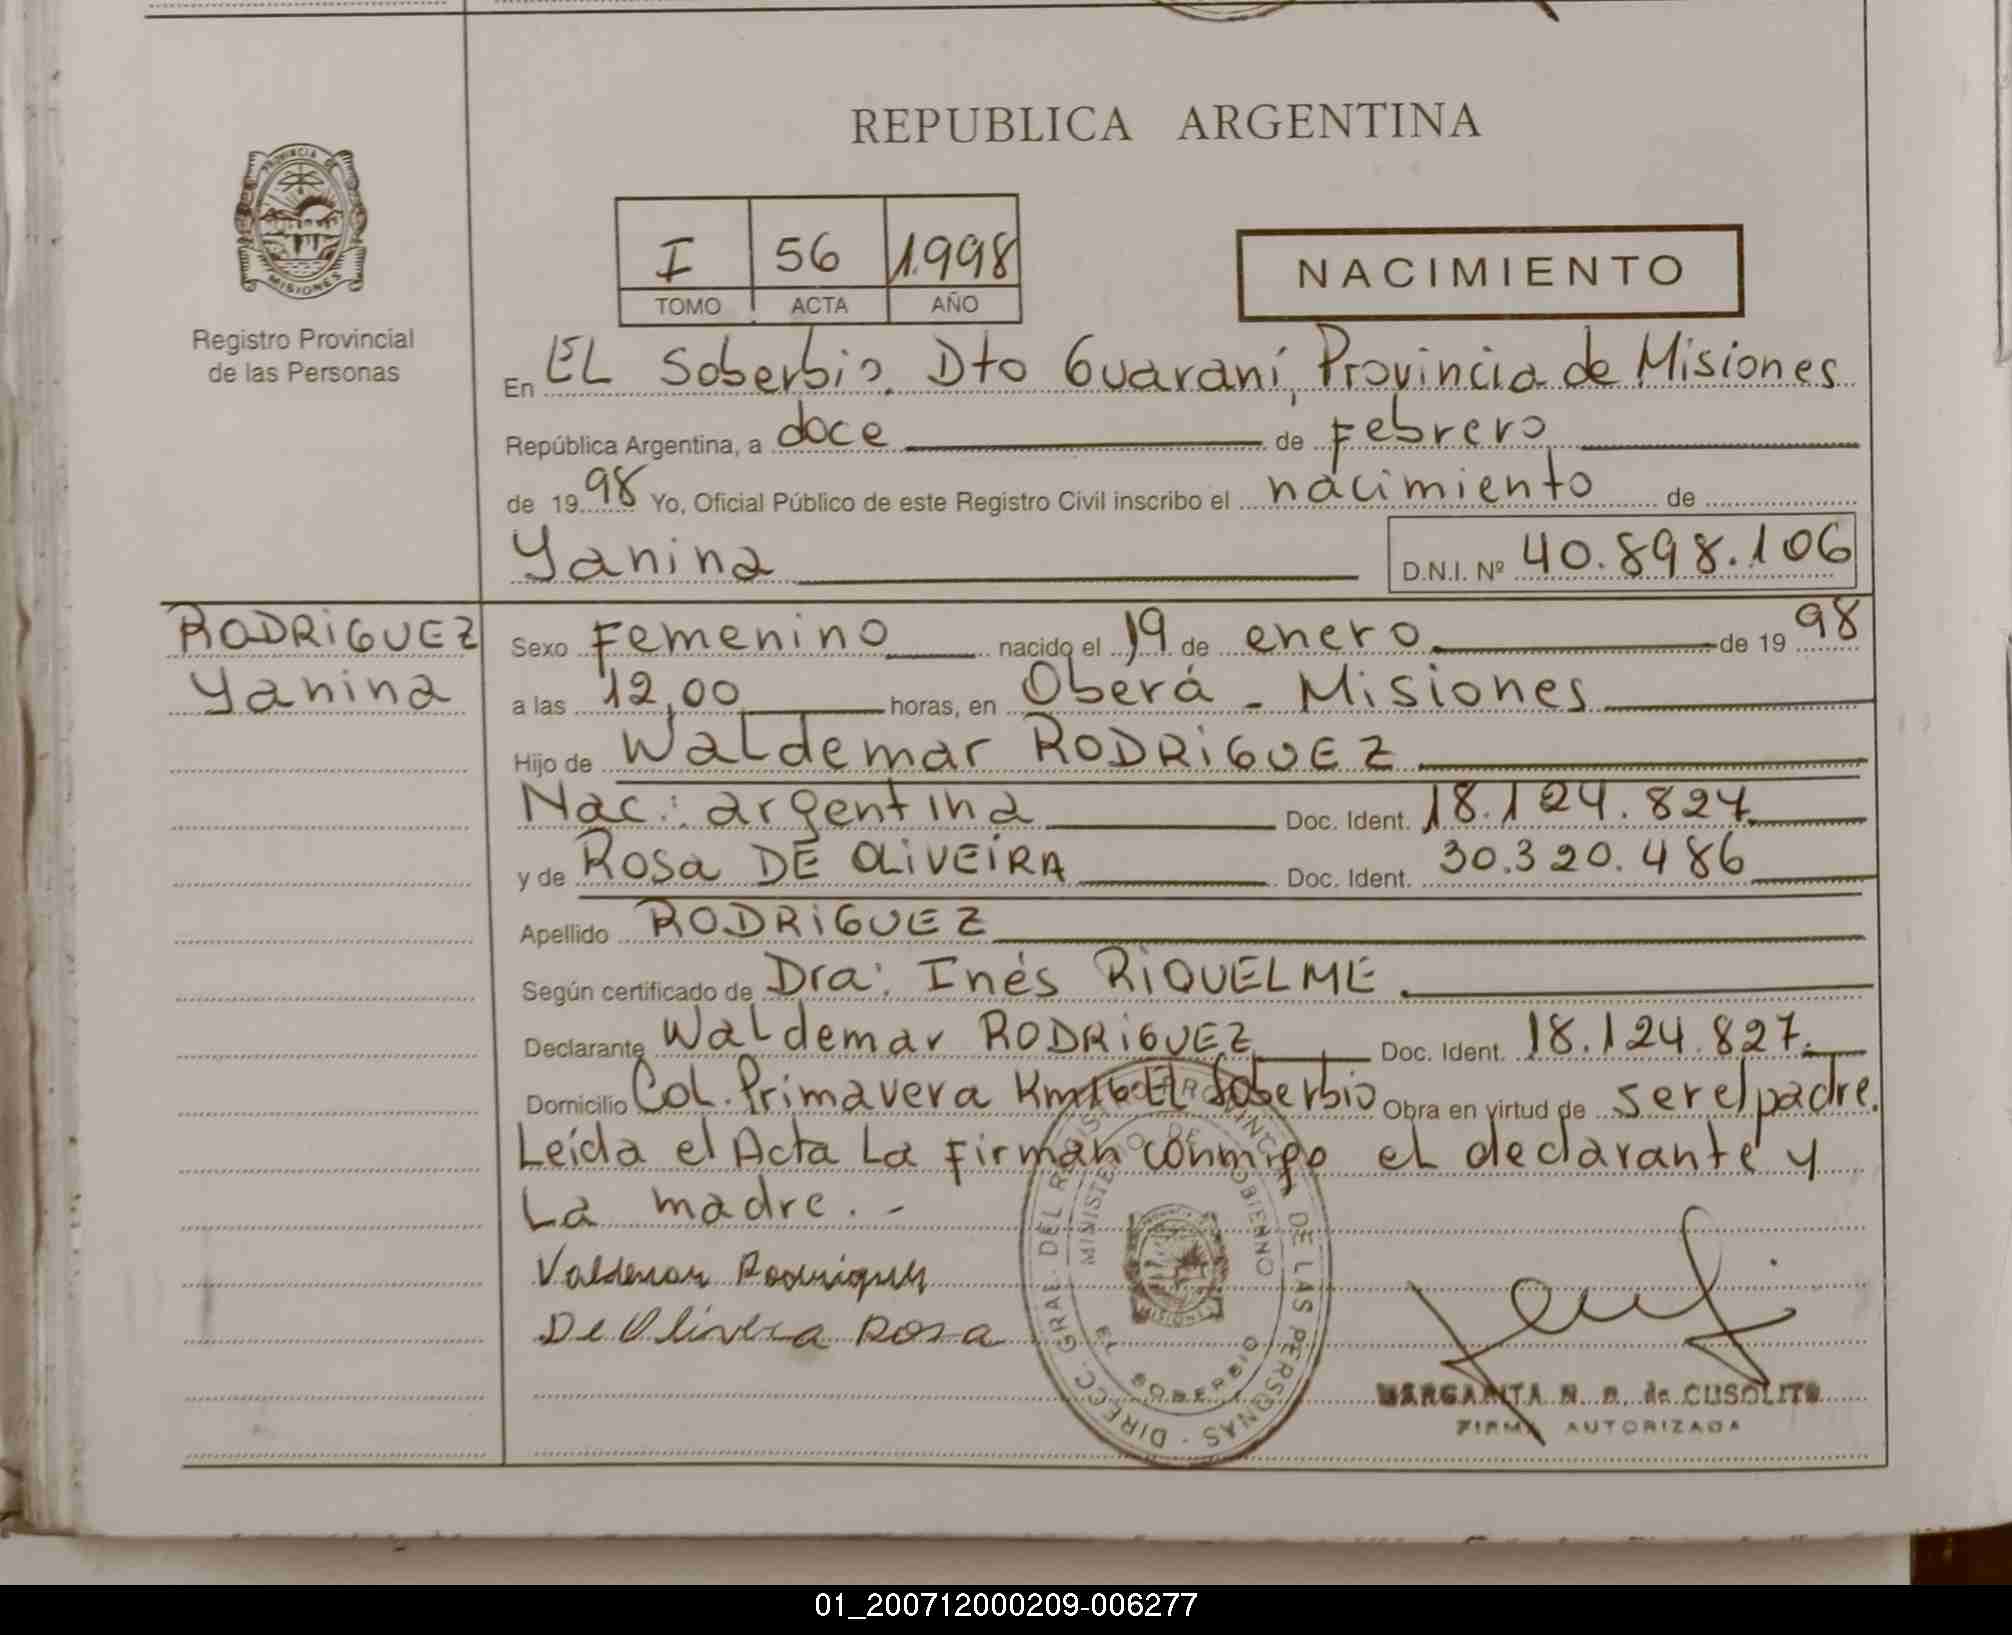 REPUBLICA ARGENTINA
PROVINCIA DE
MISIONES
Registro Provincial
de las Personas
I 56 1.998
TOMO ACTA AÑO
NACIMIENTO
En EL Soberbio. Dto Guaraní, Provincia de Misiones
República Argentina, a doce de Febrero
de 19 98 Yo, Oficial Público de este Registro Civil inscribo el nacimiento de
Yanina D.N.I. Nº 40.898.106
RODRIGUEZ
Yanina
Sexo Femenino nacido el 19 de enero de 19 98
a las 12,00 horas, en Oberá - Misiones
Hijo de Waldemar RODRIGUEZ
Nac: argentina Doc. Ident. 18.124.827.
y de Rosa DE OLIVEIRA Doc. Ident. 30.320.486
Apellido RODRIGUEZ
Según certificado de Dra: Inés RIQUELME
Declarante Waldemar RODRIGUEZ Doc. Ident. 18.124.827.
Domicilio Col. Primavera Km16 El Soberbio Obra en virtud de ser el padre.
Leída el Acta La Firman conmigo el declarante y
La madre. -
Valdemar Rodriguez
De Oliveira Rosa
DIRECC. GRAL. DEL REGISTRO PROVINCIAL DE LAS PERSONAS
MINISTERIO DE GOBIERNO
EL SOBERBIO
MISIONES
MARGARITA N. B. de CUSOLITO
FIRMA AUTORIZADA
01_200712000209-006277